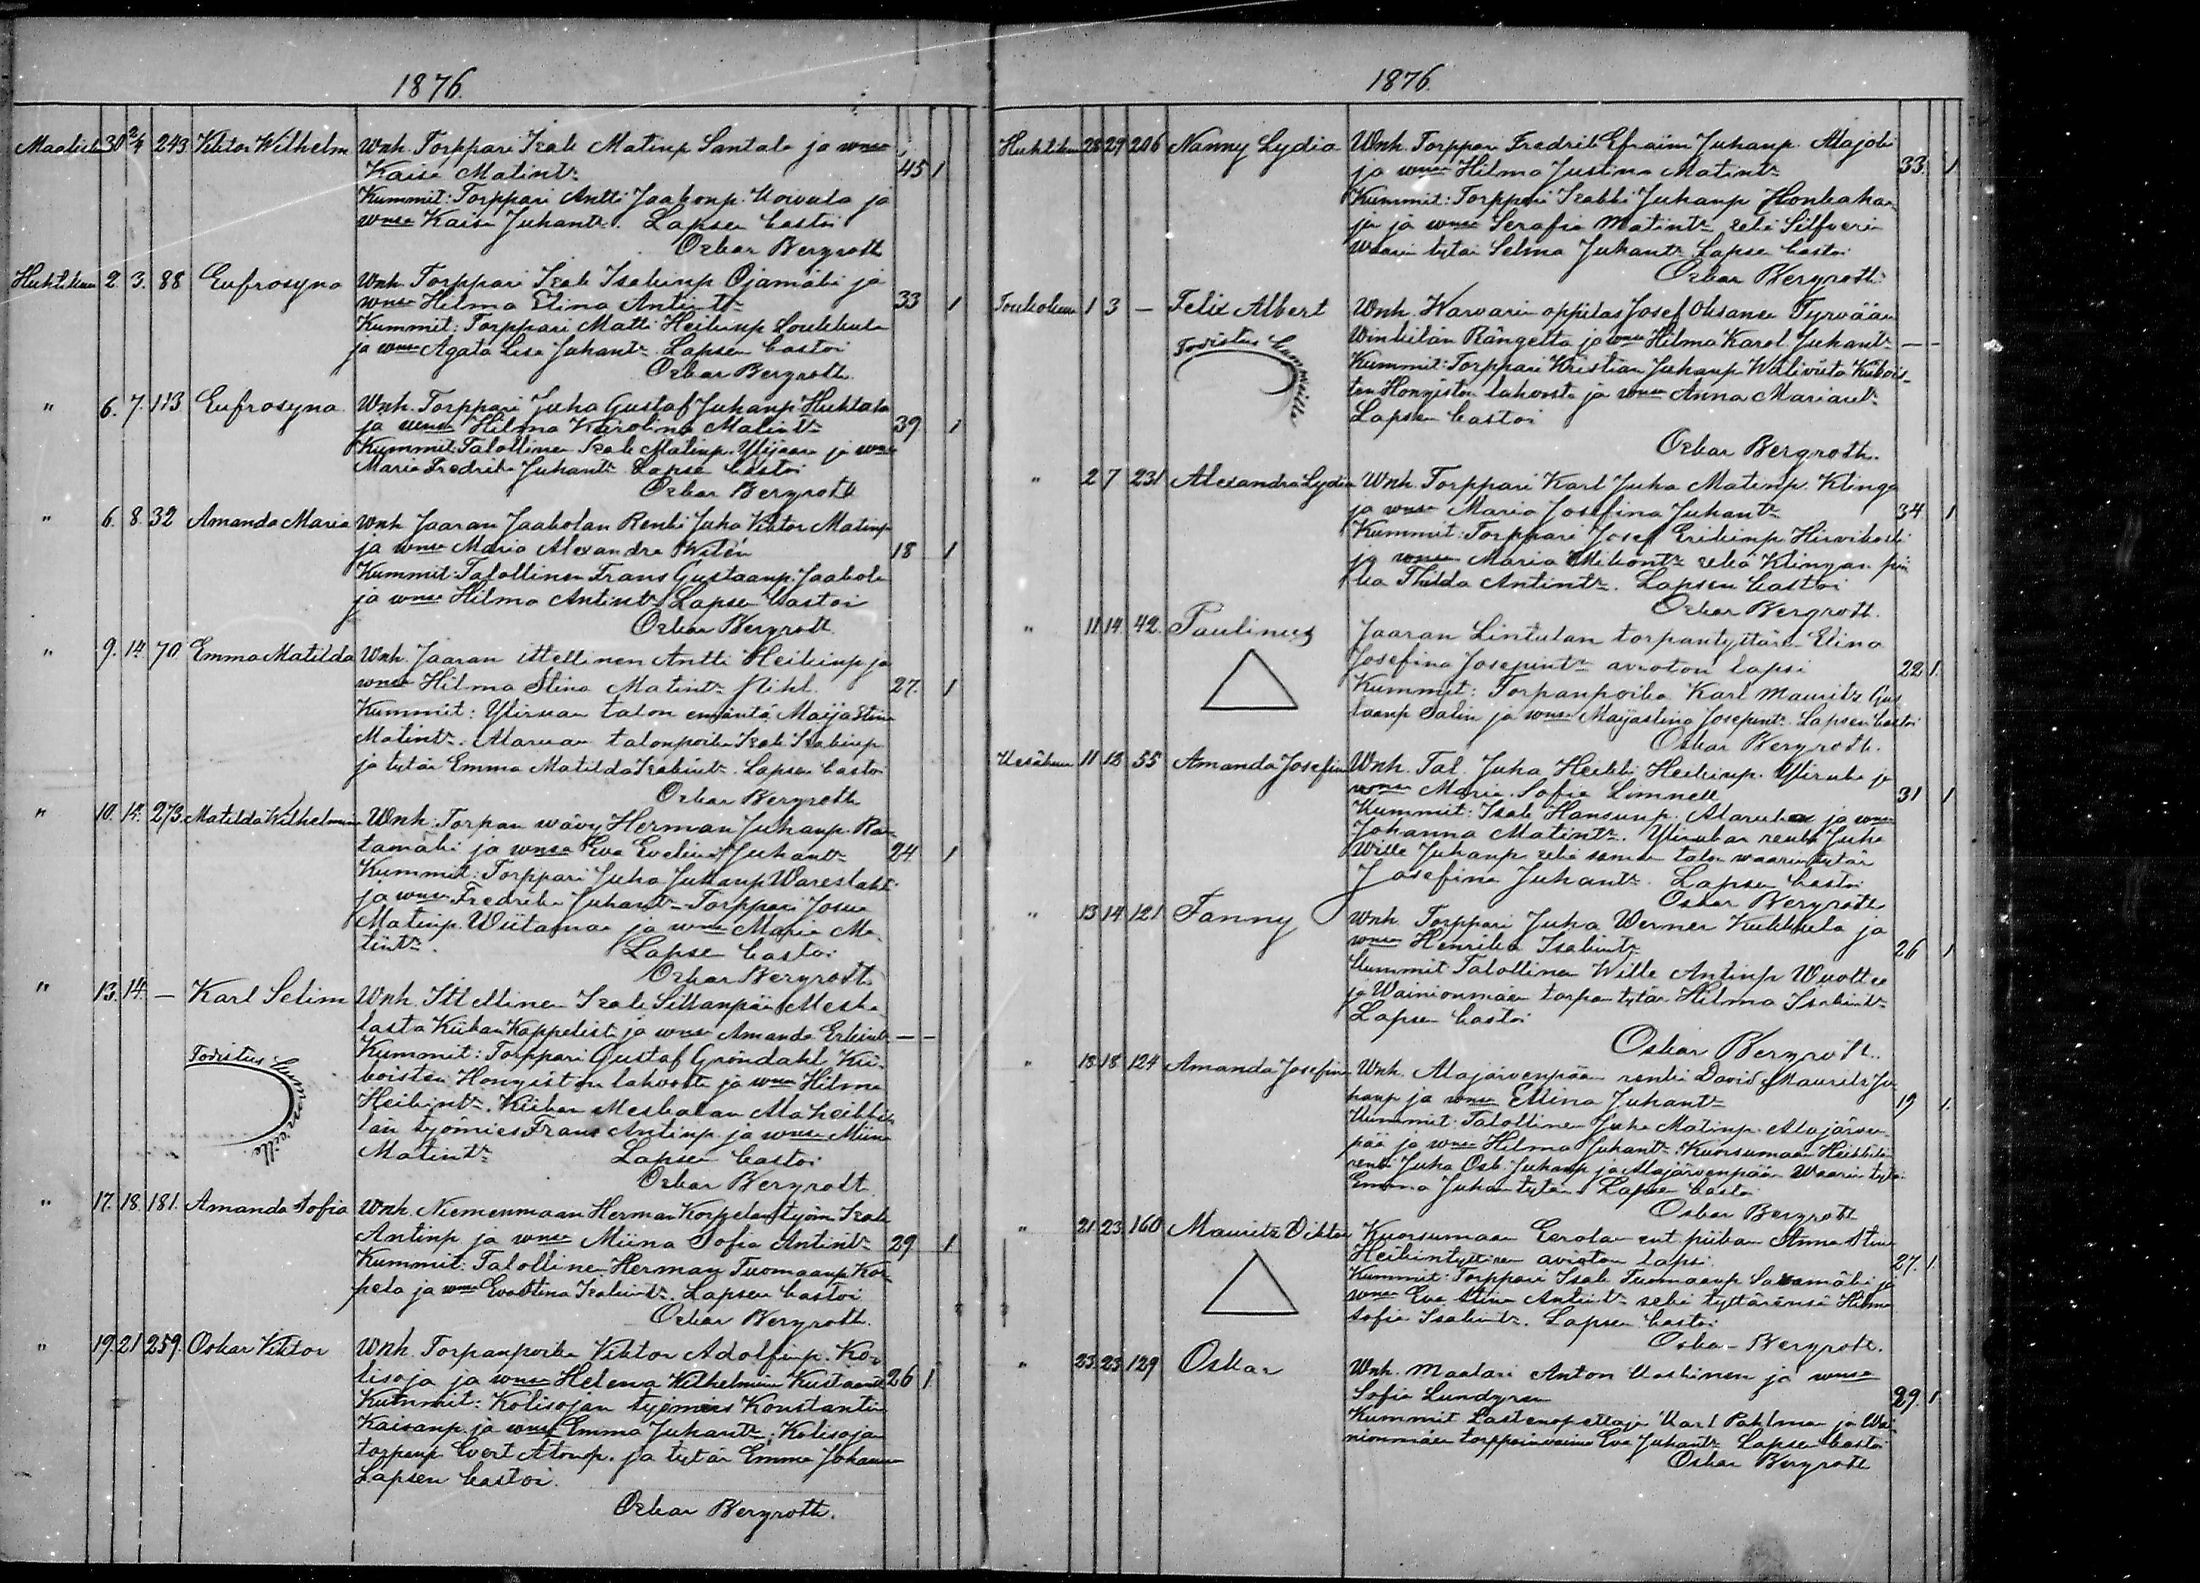 1876.
Maalisk 30 2/4 243 Viktor Wilhelm Wnh. Torppari Isak Matinp. Santala ja wmsa 45 1
Kaisa Matint:
Kummit: Torppari Antti Jaakonp. Koivula ja
wmsa Kaisa Juhant: Lapsen kastoi
Oskar Bergroth
Huhtikuu 2. 3. 88 Eufrosyna Wnh. Torppari Isak Isakinp Ojamäki ja
wmsa Hilma Elina Antint: 33 1
Kummit: Torppari Matti Heikinp Loukkula
ja wmsa Agata Lisa Juhant: Lapsen kastoi
Oskar Bergroth.
" 6. 7. 113 Eufrosyna. Wnh. Torppari Juha Gustaf Juhanp Huhtala
ja wmsa Hilma Karolina Matint: 39 1
Kummit: Talollinen Isak Matinp. Ylijaara ja wmsa
Maria Fredrika Juhant: Lapse kastoi
Oskar Bergroth
" 6. 8. 32 Amanda Maria Wnh. Jaaran Jaakolan Renki Juha Viktor Matinp
ja wmsa Maria Alexandra Witén 18 1
Kummit: Talollinen Frans Gustaanp. Jaakola
ja wmsa Hilma Antint: Lapsen kastoi
Oskar Bergroth.
" 9. 14. 70. Emma Matilda Wnh. Jaaran ittellinen Antti Heikinp ja
wmsa Hilma Stina Matint: Pihl. 27. 1
Kummit: Yliruan talon emäntä Maija Stina
Matint: Alaruan talonpoika Isak Isakinp
ja tytär Emma Matilda Isakint: Lapsen kastoi
Oskar Bergroth
" 10. 14. 273. Matilda Wilhelmina Wnh. Torpan wävy Herman Juhanp. Ra-
tamäki ja wmsa Eva Evelina Juhant: 24 1
Kummit: Torppari Juha Juhanp Wareslahti
ja wmsa Fredrika Juhant: Torppari Josua
Matinp. Wiitamaa ja wmsa Maria Ma-
tint: Lapse kastoi
Oskar Bergroth
" 13. 14. — Karl Selim Wnh. Ittellinen Isak Sillanpää Mesk-
lasta Kiikan Kappelista ja wmsa Amanda Erkint: — —
Todistus Kummeille
Kummit: Torppari Gustaf Gröndahl Kii-
koisten Hongiston lahosta ja wmsa Hilma
Heikint: Kiikan Meskalan Alaheikki-
län työmies Frans Antinp ja wmsa Miina
Matint: Lapsen kastoi
Oskar Bergroth
" 17. 18. 181. Amanda Sofia Wnh. Niemenmaan Herman Korpelan työm Isak
Antinp ja wmsa Miina Sofia Antint: 29 1
Kummit: Talollinen Herman Tuomaanp Kor-
pela ja wmsa Eva Stina Isakint: Lapsen kastoi
Oskar Bergroth.
" 19. 21 259. Oskar Viktor Wnh. Torpanpoika Viktor Adolfinp. Ko-
lisoja ja wmsa Helena Wilhelmina Kustaant: 26 1
Kummit: Kolisojan työmies Konstantin
Kaisanp. ja wmsa Emma Juhant: Kolisojan
torpanp Evert Atonp. ja tytär Emma Johanna
Lapsen kastoi.
Oskar Bergroth.
1876.
Huhtikuu 28 29 206 Nanny Lydia Wnh. Torppari Fredrik Efraim Juhanp. Alajoki
ja wmsa Hilma Justina Matint: 33. 1
Kummit: Torppari Isakki Juhanp Honkahar-
ju ja wmsa Serafia Matint: sekä Silfverin
waarin tytär Selma Juhant: Lapse kastoi
Oskar Bergroth.
Toukokuu 1 3 — Felix Albert Wnh. Warvarin oppilas Josef Oksanen Tyrvään
Todistus Kummeille
Winkilän Rängeltä ja wmsa Hilma Karol. Juhant: — —
Kummit: Torppari Kristian Juhanp Waliviita Kiikois-
ten Hongiston lahosta ja wmsa Anna Mariant:
Lapsen kastoi
Oskar Bergroth.
" 2 7 231 Alexandra Lydia Wnh. Torppari Karl Juha Matinp. Klinga
ja wmsa Maria Josefina Juhant: 34 1
Kummit: Torppari Josef Erikinp. Hirvikoski
ja wmsa Maria Mikont: sekä Klingan pii-
ka Thilda Antint: Lapsen kastoi
Oskar Bergroth.
" 11 14 42. Paulinus Jaaran Lintulan torpantyttären Elina
Josefina Josepint: avioton lapsi 22 1.
Kummit: Torpanpoika Karl Maurits Gus-
taanp Salin ja wmsa Maijastina Josepint: Lapsen kastoi
Oskar Bergroth.
Kesäkuu 11 18 55 Amanda Josefina Wnh. Tal. Juha Heikki Heikinp. Yliruka ja
wmsa Maria Sofia Limnell 31 1
Kummit: Isak Hansunp. Alaruka ja wmsa
Johanna Matint: Ylirukan renki Juha
Wille Juhanp sekä saman talon waarin tytär
Josefina Juhant: Lapsen kastoi
Oskar Bergroth
" 13 14 121 Fanny Wnh. Torppari Juha Werner Kukkula ja
wmsa Henrika Isakint: 26 1
Kummit: Talollinen Wille Antinp Wuoltee
ja Wainionmäen torpan tytär Hilma Isakint:
Lapsen kastoi
Oskar Bergroth.
" 18 18 124 Amanda Josefina Wnh. Alajärvenpään renki David Maurits Ju-
hanp ja wmsa Elina Juhant: 19 1.
Kummit: Talollinen Juha Matinp. Alajärven-
pää ja wmsa Hilma Juhant: Kuorsumaan Heikkilän
renki Juha Osk. Juhanp ja Alajärvenpään Waarin tytär
Emma Juhantytär. Lapsen kastoi
Oskar Bergroth
" 21 23 160 Maurits Viktor Kuorsumaan Eerolan ent. piikan Anna Stina
Heikintyttären avioton lapsi. 27. 1.
Kummit: Torppari Isak Tuomaanp Saxamäki ja
wmsa Eva Stina Antint: sekä tyttärensä Hilma
Sofia Isakint: Lapsen kastoi
Oskar Bergroth.
" 23 23 129 Oskar Wnh. Maalari Anton Koskinen ja wmsa
Sofia Lundgren 29. 1.
Kummit Lastenopettaja Karl Pahlman ja Wai-
nionmäen torpparinvaimo Eva Juhant: Lapsen kastoi
Oskar Bergroth